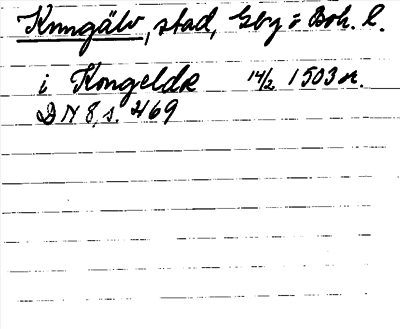 Kungälv, stad, Gbg o Boh. l.
i Kongeldæ 14/2 1503 or.
DN 8, s. 469